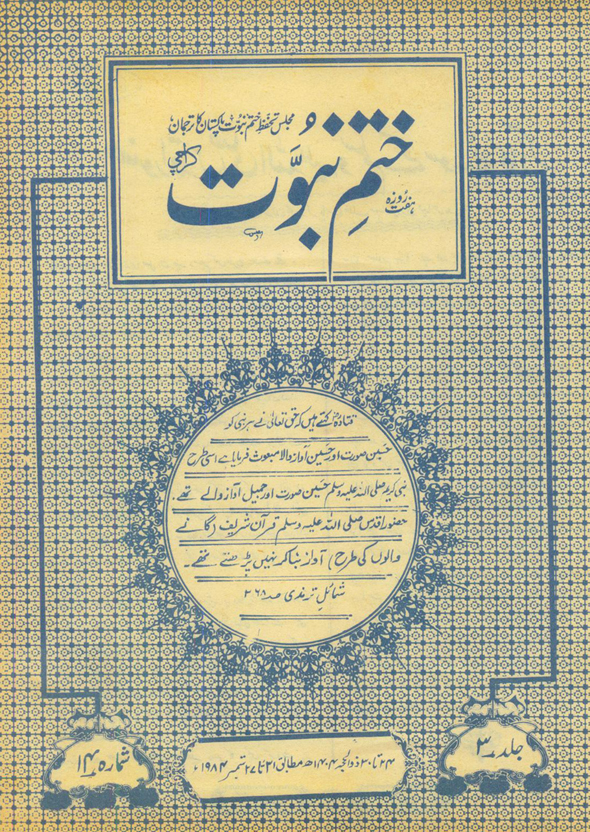 مجلس تحفظ ختم نبوت پاکستان کا ترجمان
ہفت روزہ
ختمِ نبوّت
کراچی
قتادہؓ کہتے ہیں کہ حق تعالیٰ نے ہر نبی کو
حسین صورت اور حسین آواز والا مبعوث فرمایا ہے اسی طرح
نبی کریم صلی اللہ علیہ وسلم حسین صورت اور جمیل آواز والے تھے۔
حضور اقدس صلی اللہ علیہ وسلم قرآن شریف (گانے
والوں کی طرح) آواز بنا کر نہیں پڑھتے تھے۔
شمائل ترمذی صـ ۳۶۸
جلد ۳
۲۴ تا ۳۰ ذوالحجہ ۱۴۰۴ھ مطابق ۲۱ تا ۲۷ ستمبر ۱۹۸۴ء
شمارہ ۱۴